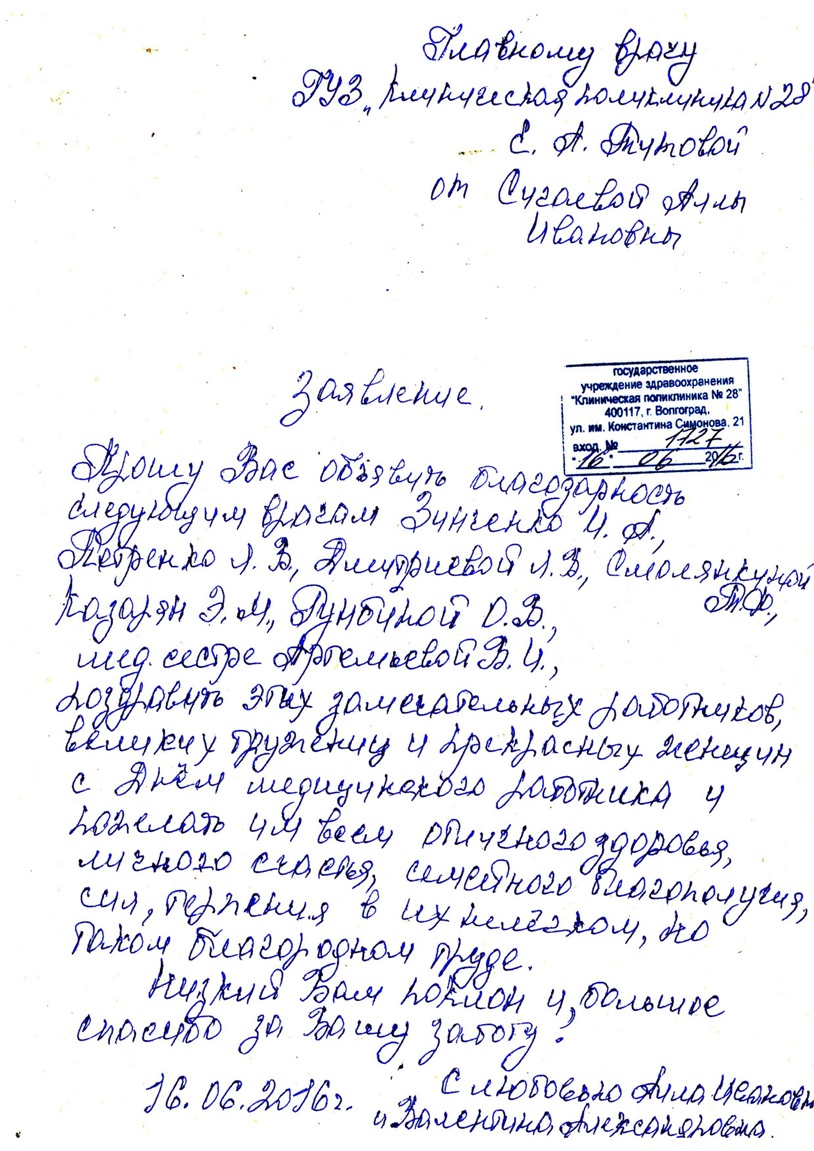 Главному врачу
ГУЗ "Клиническая поликлиника N 28"
Е. А. Тутовой
от Сугаевой Аллы
Ивановны
государственное
учреждение здравоохранения
"Клиническая поликлиника № 28"
400117, г. Волгоград,
ул. им. Константина Симонова, 21
вход. № 1727
"16" 06 2016г.
Заявление.
Прошу Вас объявить благодарность
следующим врачам Зинченко И. А.,
Петренко Л. В., Дмитриевой Л. В., Смолянкуной
Т.Ф.,
Казарян Э. М., Рунбиной О. В.,
мед. сестре Артемьевой В. И.,
поздравить этих замечательных работников,
великих тружениц и прекрасных женщин
с Днём медицинского работника и
пожелать им всем отличного здоровья,
личного счастья, семейного благополучия,
сил, терпения в их нелёгком, но
таком благородном труде.
Низкий Вам поклон и большое
спасибо за Вашу заботу!
16.06.2016г.
С любовью Алла Ивановна
и Валентина Александровна.